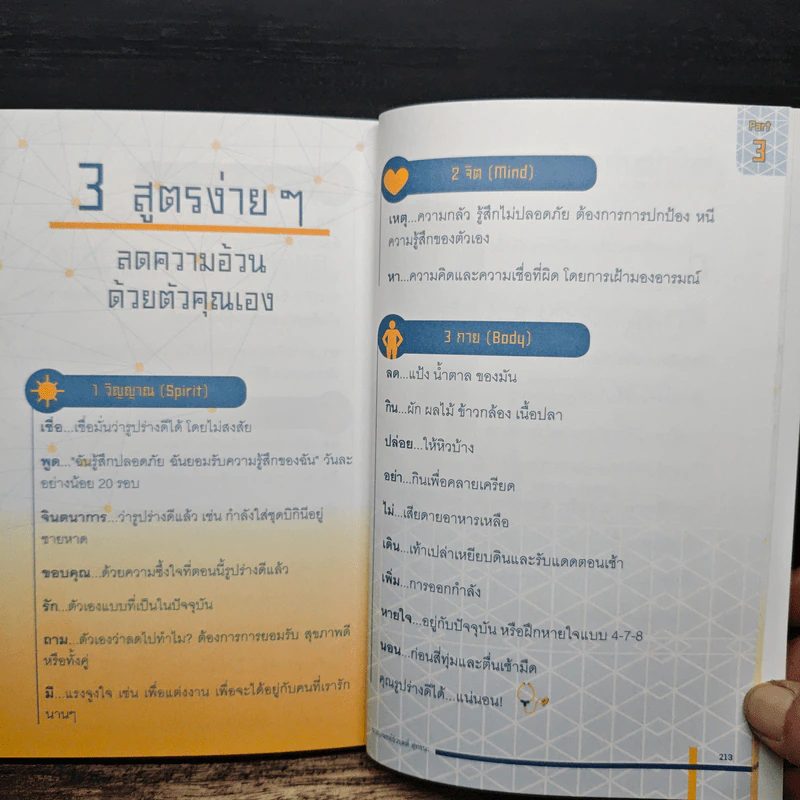 3 สูตรง่าย ๆ
ลดความอ้วน
ด้วยตัวคุณเอง
1 วิญญาณ (Spirit)
เชื่อ...เชื่อมั่นว่ารูปร่างดีได้ โดยไม่สงสัย
พูด..."ฉันรู้สึกปลอดภัย ฉันยอมรับความรู้สึกของฉัน" วันละ
อย่างน้อย 20 รอบ
จินตนาการ...ว่ารูปร่างดีแล้ว เช่น กำลังใส่ชุดบิกินีอยู่
ชายหาด
ขอบคุณ...ด้วยความซึ้งใจที่ตอนนี้รูปร่างดีแล้ว
รัก...ตัวเองแบบที่เป็นในปัจจุบัน
ถาม...ตัวเองว่าลดไปทำไม? ต้องการการยอมรับ สุขภาพดี
หรือทั้งคู่
มี...แรงจูงใจ เช่น เพื่อแต่งงาน เพื่อจะได้อยู่กับคนที่เรารัก
นานๆ
Part
3
2 จิต (Mind)
เหตุ...ความกลัว รู้สึกไม่ปลอดภัย ต้องการการปกป้อง หนี
ความรู้สึกของตัวเอง
หา...ความคิดและความเชื่อที่ผิด โดยการเฝ้ามองอารมณ์
3 กาย (Body)
ลด...แป้ง น้ำตาล ของมัน
กิน...ผัก ผลไม้ ข้าวกล้อง เนื้อปลา
ปล่อย...ให้หิวบ้าง
อย่า...กินเพื่อคลายเครียด
ไม่...เสียดายอาหารเหลือ
เดิน...เท้าเปล่าเหยียบดินและรับแดดตอนเช้า
เพิ่ม...การออกกำลัง
หายใจ...อยู่กับปัจจุบัน หรือฝึกหายใจแบบ 4-7-8
นอน...ก่อนสี่ทุ่มและตื่นเช้ามืด
คุณรูปร่างดีได้...แน่นอน!
213